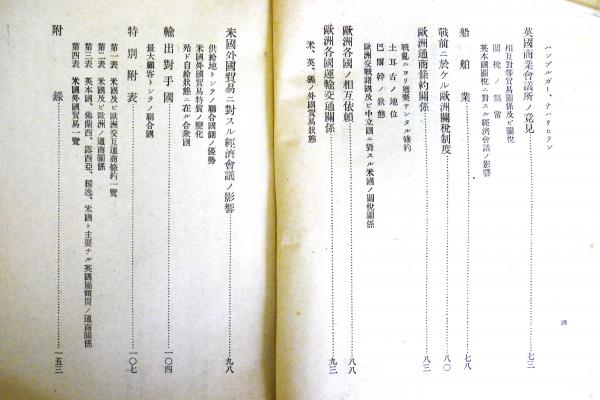 ハンブルガー、ナハリヒテン
英國商業會議所ノ意見……七三
相互對等貿易關係及ビ關稅
關稅ノ割當
英本國關稅ニ對スル經濟會議ノ影響
船舶業……七八
戰前ニ於ケル歐洲關稅制度……八〇
歐洲通商條約關係……八三
戰亂ニヨリ廢棄サレタル條約
土耳古ノ地位
巴爾幹ノ狀態
歐洲交戰諸國及ビ中立國ニ對スル米國ノ關稅關係
歐洲各國ノ相互依賴……八八
歐洲各國運輸交通關係……九三
米、英、獨ノ外國貿易狀態
四
米國外國貿易ニ對スル經濟會議ノ影響……九八
供給地トシテノ聯合國側ノ優勢
米國外國貿易特質ノ變化
殆ド自給狀態ニ在ル合衆國
輸出對手國……一〇四
最大顧客トシテノ聯合國
特別附表……一〇七
第一表 米國及ビ歐洲交互通商條約一覽
第二表 米國及ビ歐洲ノ通商關係
第三表 英本國、佛蘭西、露西亞、獨逸、米國ト主要ナル英國屬領間ノ通商關係
第四表 米國外國貿易一覽
附錄……一五三